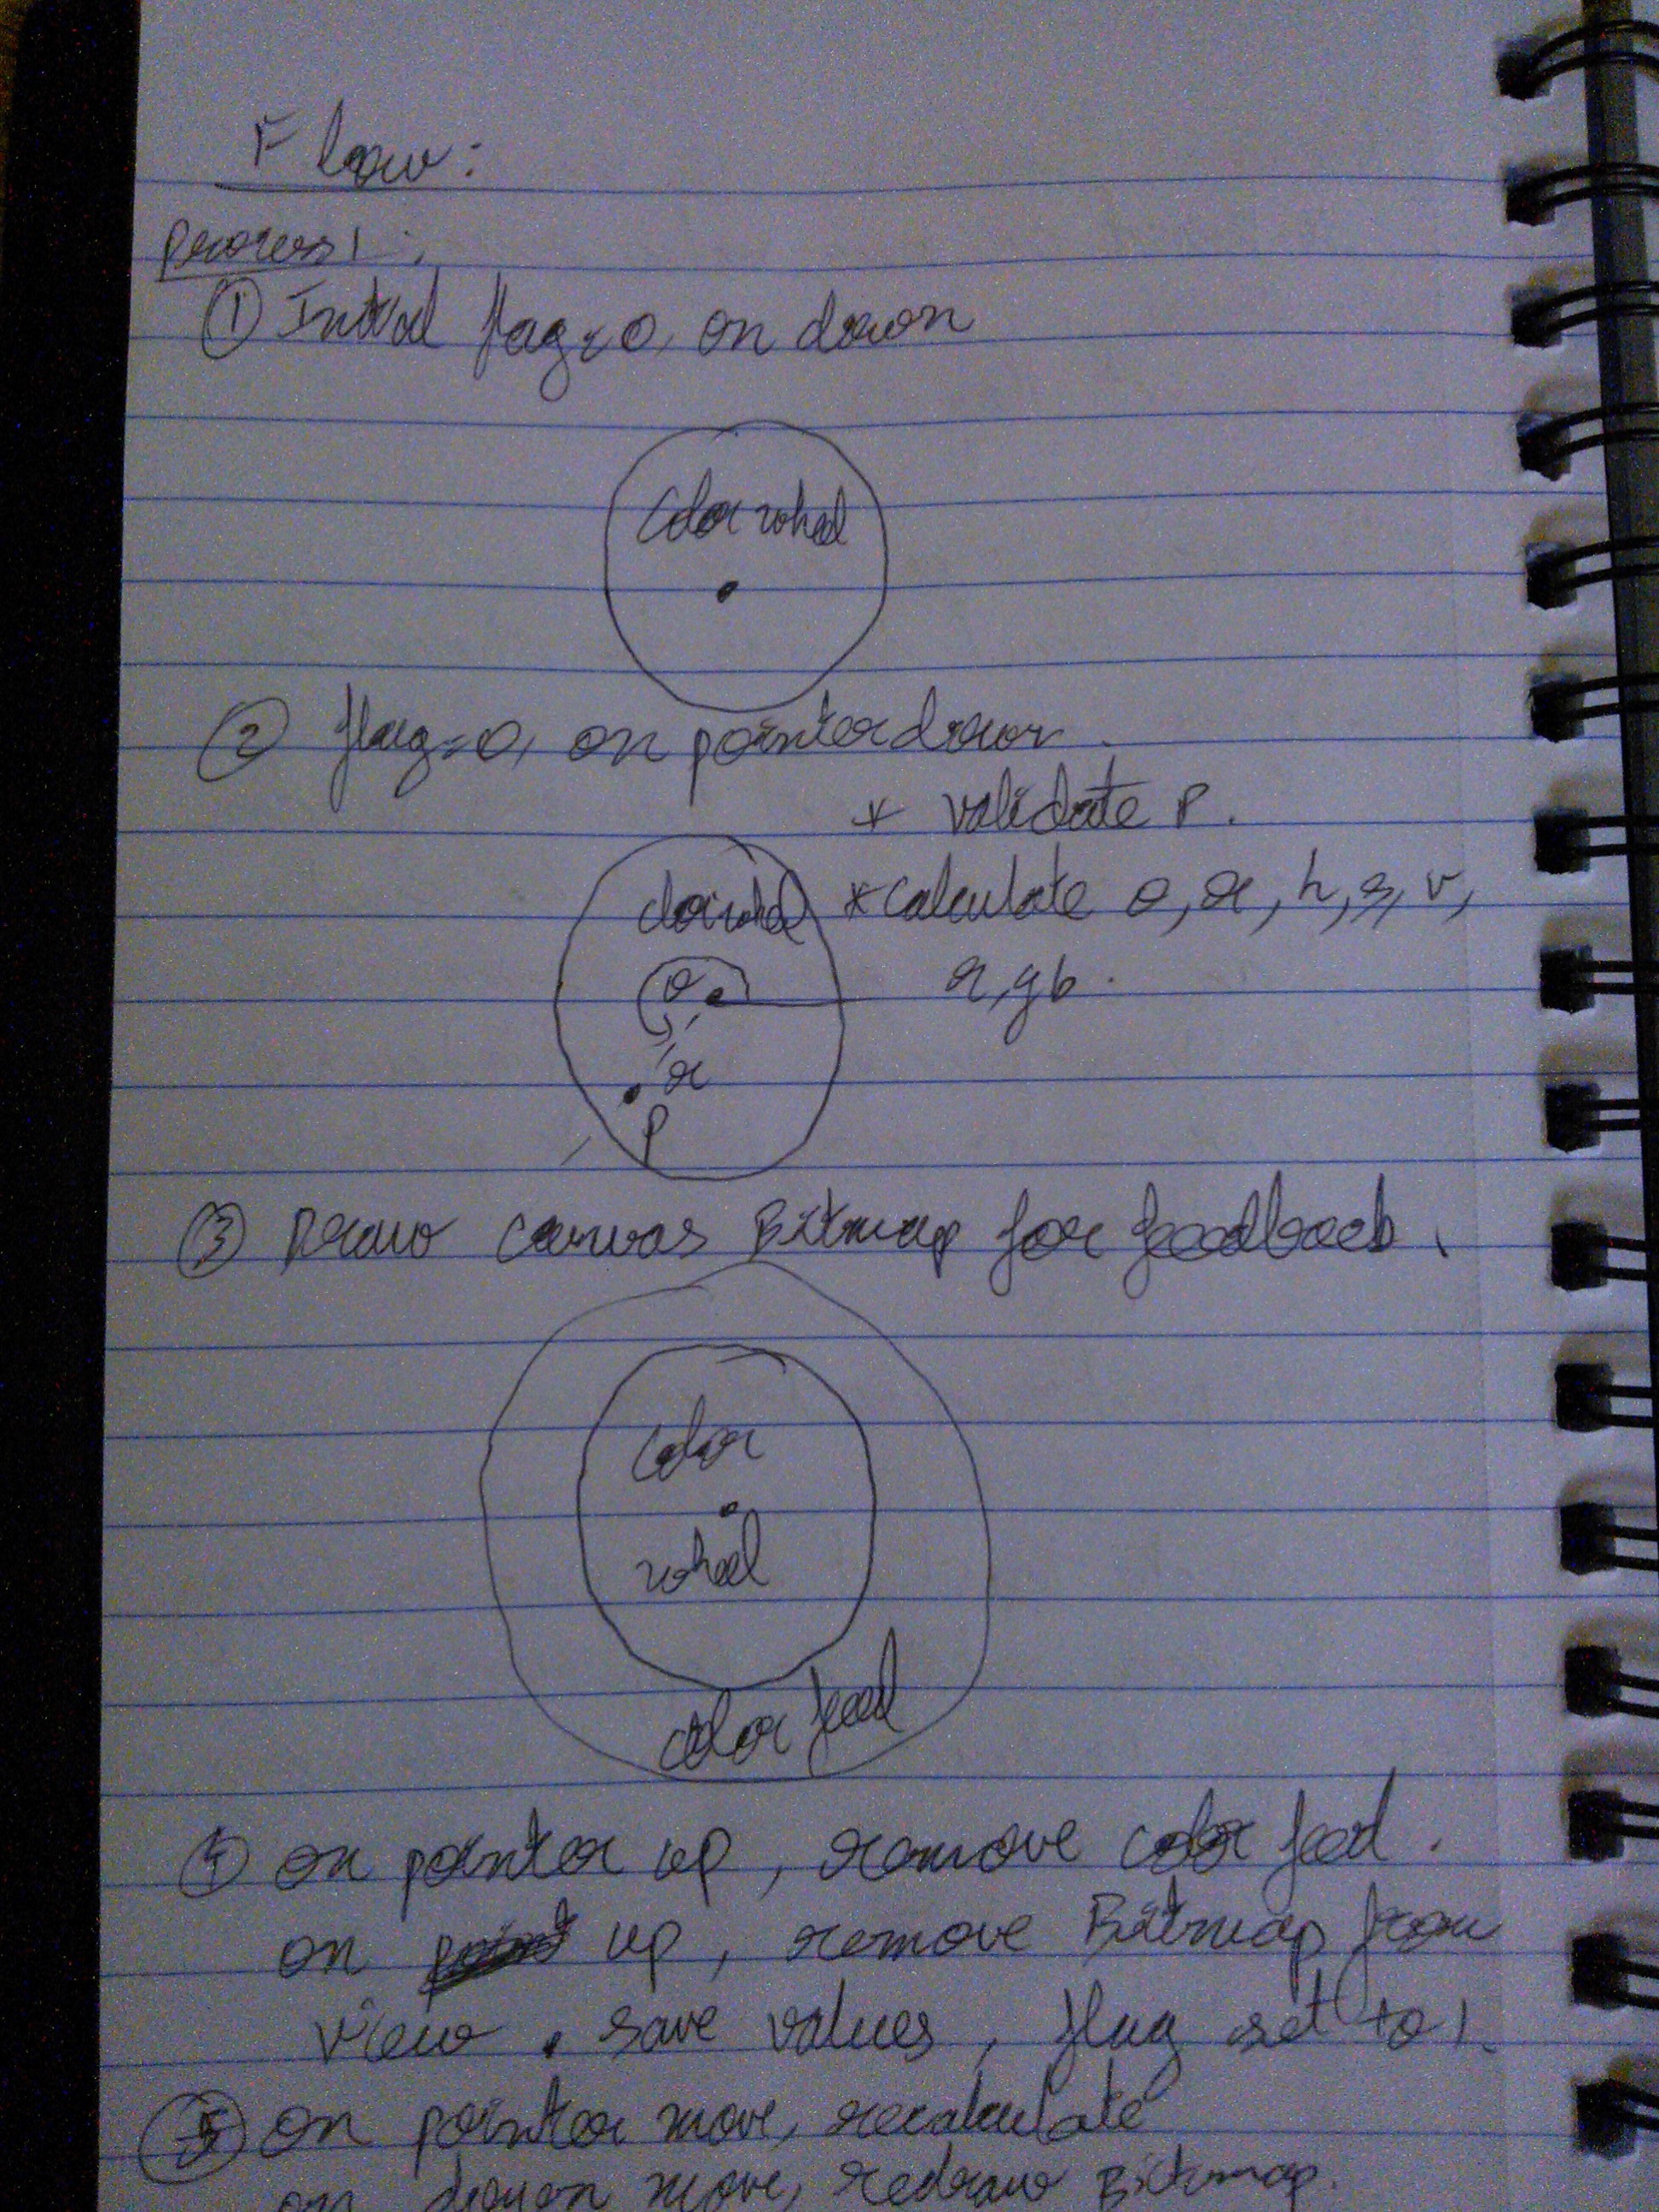 Flow:
Process 1:
① Initial flag=0, on down
Color wheel
② flag=0, on pointer down.
* validate P.
color wheel
* calculate θ, r, h, s, v,
θ
r, g b.
r
P
③ Draw canvas Bitmap for feedback.
color
wheel
color feed
④ on pointer up, remove color feed.
on point up, remove Bitmap from
view. save values, flag set to 1.
⑤ on pointer move, recalculate
on move, redraw Bitmap.